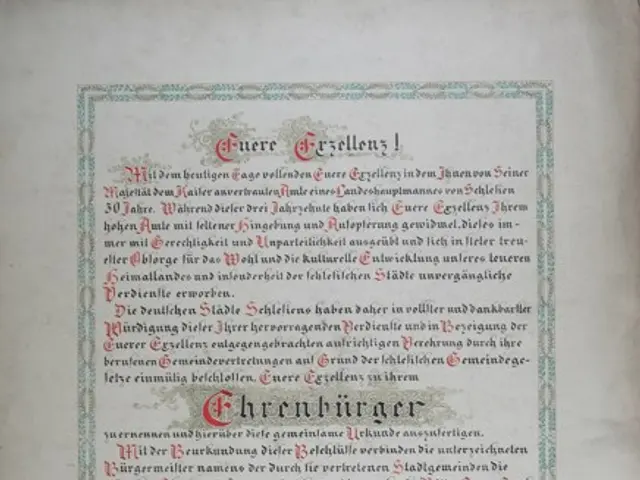 Euere Exzellenz!
Mit dem heutigen Tage vollenden Euere Exzellenz in dem Ihnen von Seiner
Majestät dem Kaiser anvertrauten Amte eines Landeshauptmannes von Schlesien
30 Jahre. Während dieser drei Jahrzehnte haben sich Euere Exzellenz Ihrem
hohen Amte mit seltener Hingebung und Aufopferung gewidmet, dieses im-
mer mit Gerechtigkeit und Unparteilichkeit ausgeübt und sich in steter treu-
ester Obsorge für das Wohl und die kulturelle Entwicklung unseres teueren
Heimatlandes und insonderheit der schlesischen Städte unvergängliche
Verdienste erworben.
Die deutschen Städte Schlesiens haben daher in vollster und dankbarster
Würdigung dieser Ihrer hervorragenden Verdienste und in Bezeigung der
Euerer Exzellenz entgegengebrachten aufrichtigen Verehrung durch ihre
berufenen Gemeindevertretungen auf Grund der schlesischen Gemeindege-
setze einmütig beschlossen, Euere Exzellenz zu ihrem
Ehrenbürger
zu ernennen und hierüber diese gemeinsame Urkunde auszufertigen.
Mit der Beurkundung dieser Beschlüsse verbinden die unterzeichneten
Bürgermeister namens der durch sie vertretenen Stadtgemeinden die